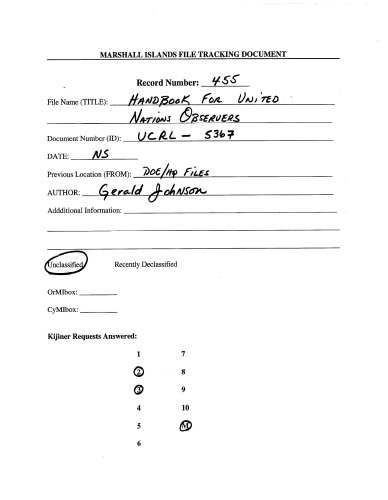 MARSHALL ISLANDS FILE TRACKING DOCUMENT
Record Number: 455
File Name (TITLE): HANDBOOK FOR UNITED
NATIONS OBSERVERS
Document Number (ID): UCRL - 5367
DATE: NS
Previous Location (FROM): DOE/HQ FILES
AUTHOR: Gerald Johnson
Addditional Information:
Unclassified Recently Declassified
OrMIbox:
CyMIbox:
Kijiner Requests Answered:
1 7
2 8
3 9
4 10
5 M
6